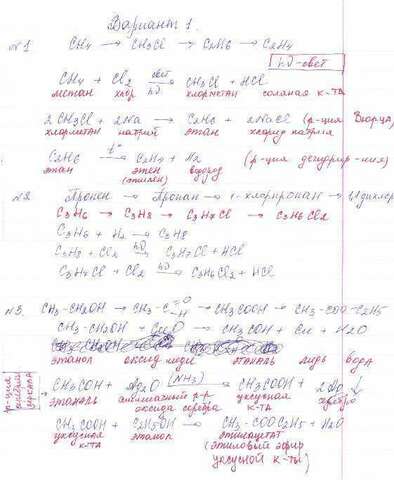 Вариант 1.
№1 CH4 → CH3Cl → C2H6 → C2H4
hν-свет
CH4 + Cl2 свет hν → CH3Cl + HCl
метан хлор хлорметан соляная к-та
2CH3Cl + 2Na → C2H6 + 2NaCl (р-ция Вюрца)
хлорметан натрий этан хлорид натрия
C2H6 t° → C2H4 + H2 (р-ция дегидрир-ния)
этан этен водород
(этилен)
№2. Пропен → Пропан → 1-хлорпропан → 1,1дихлор
C3H6 → C3H8 → C3H7Cl → C3H6Cl2
C3H6 + H2 → C3H8
C3H8 + Cl2 hν → C3H7Cl + HCl
C3H7Cl + Cl2 hν → C3H6Cl2 + HCl
№3. CH3-CH2OH → CH3-C =O -H → CH3COOH → CH3-COO-C2H5
CH3-CH2OH + CuO → CH3COH + Cu + H2O
этанол оксид меди этаналь медь вода
р-ция
зеркала
CH3COH + Ag2O (NH3) → CH3COOH + 2Ag↓
этаналь аммиачный р-р уксусная серебро
оксида серебра к-та
CH3COOH + C2H5OH → CH3-COOC2H5 + H2O
уксусная этанол этилацетат
к-та (этиловый эфир
уксусной к-ты)